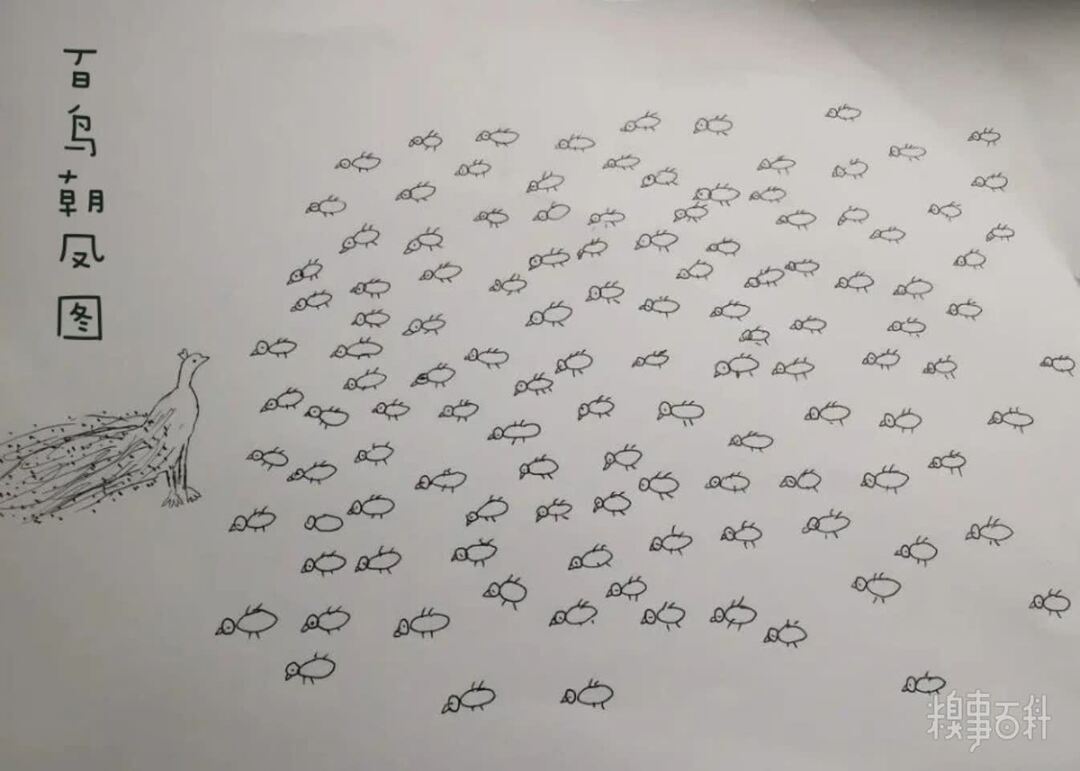 百鸟朝凤图
糗事百科